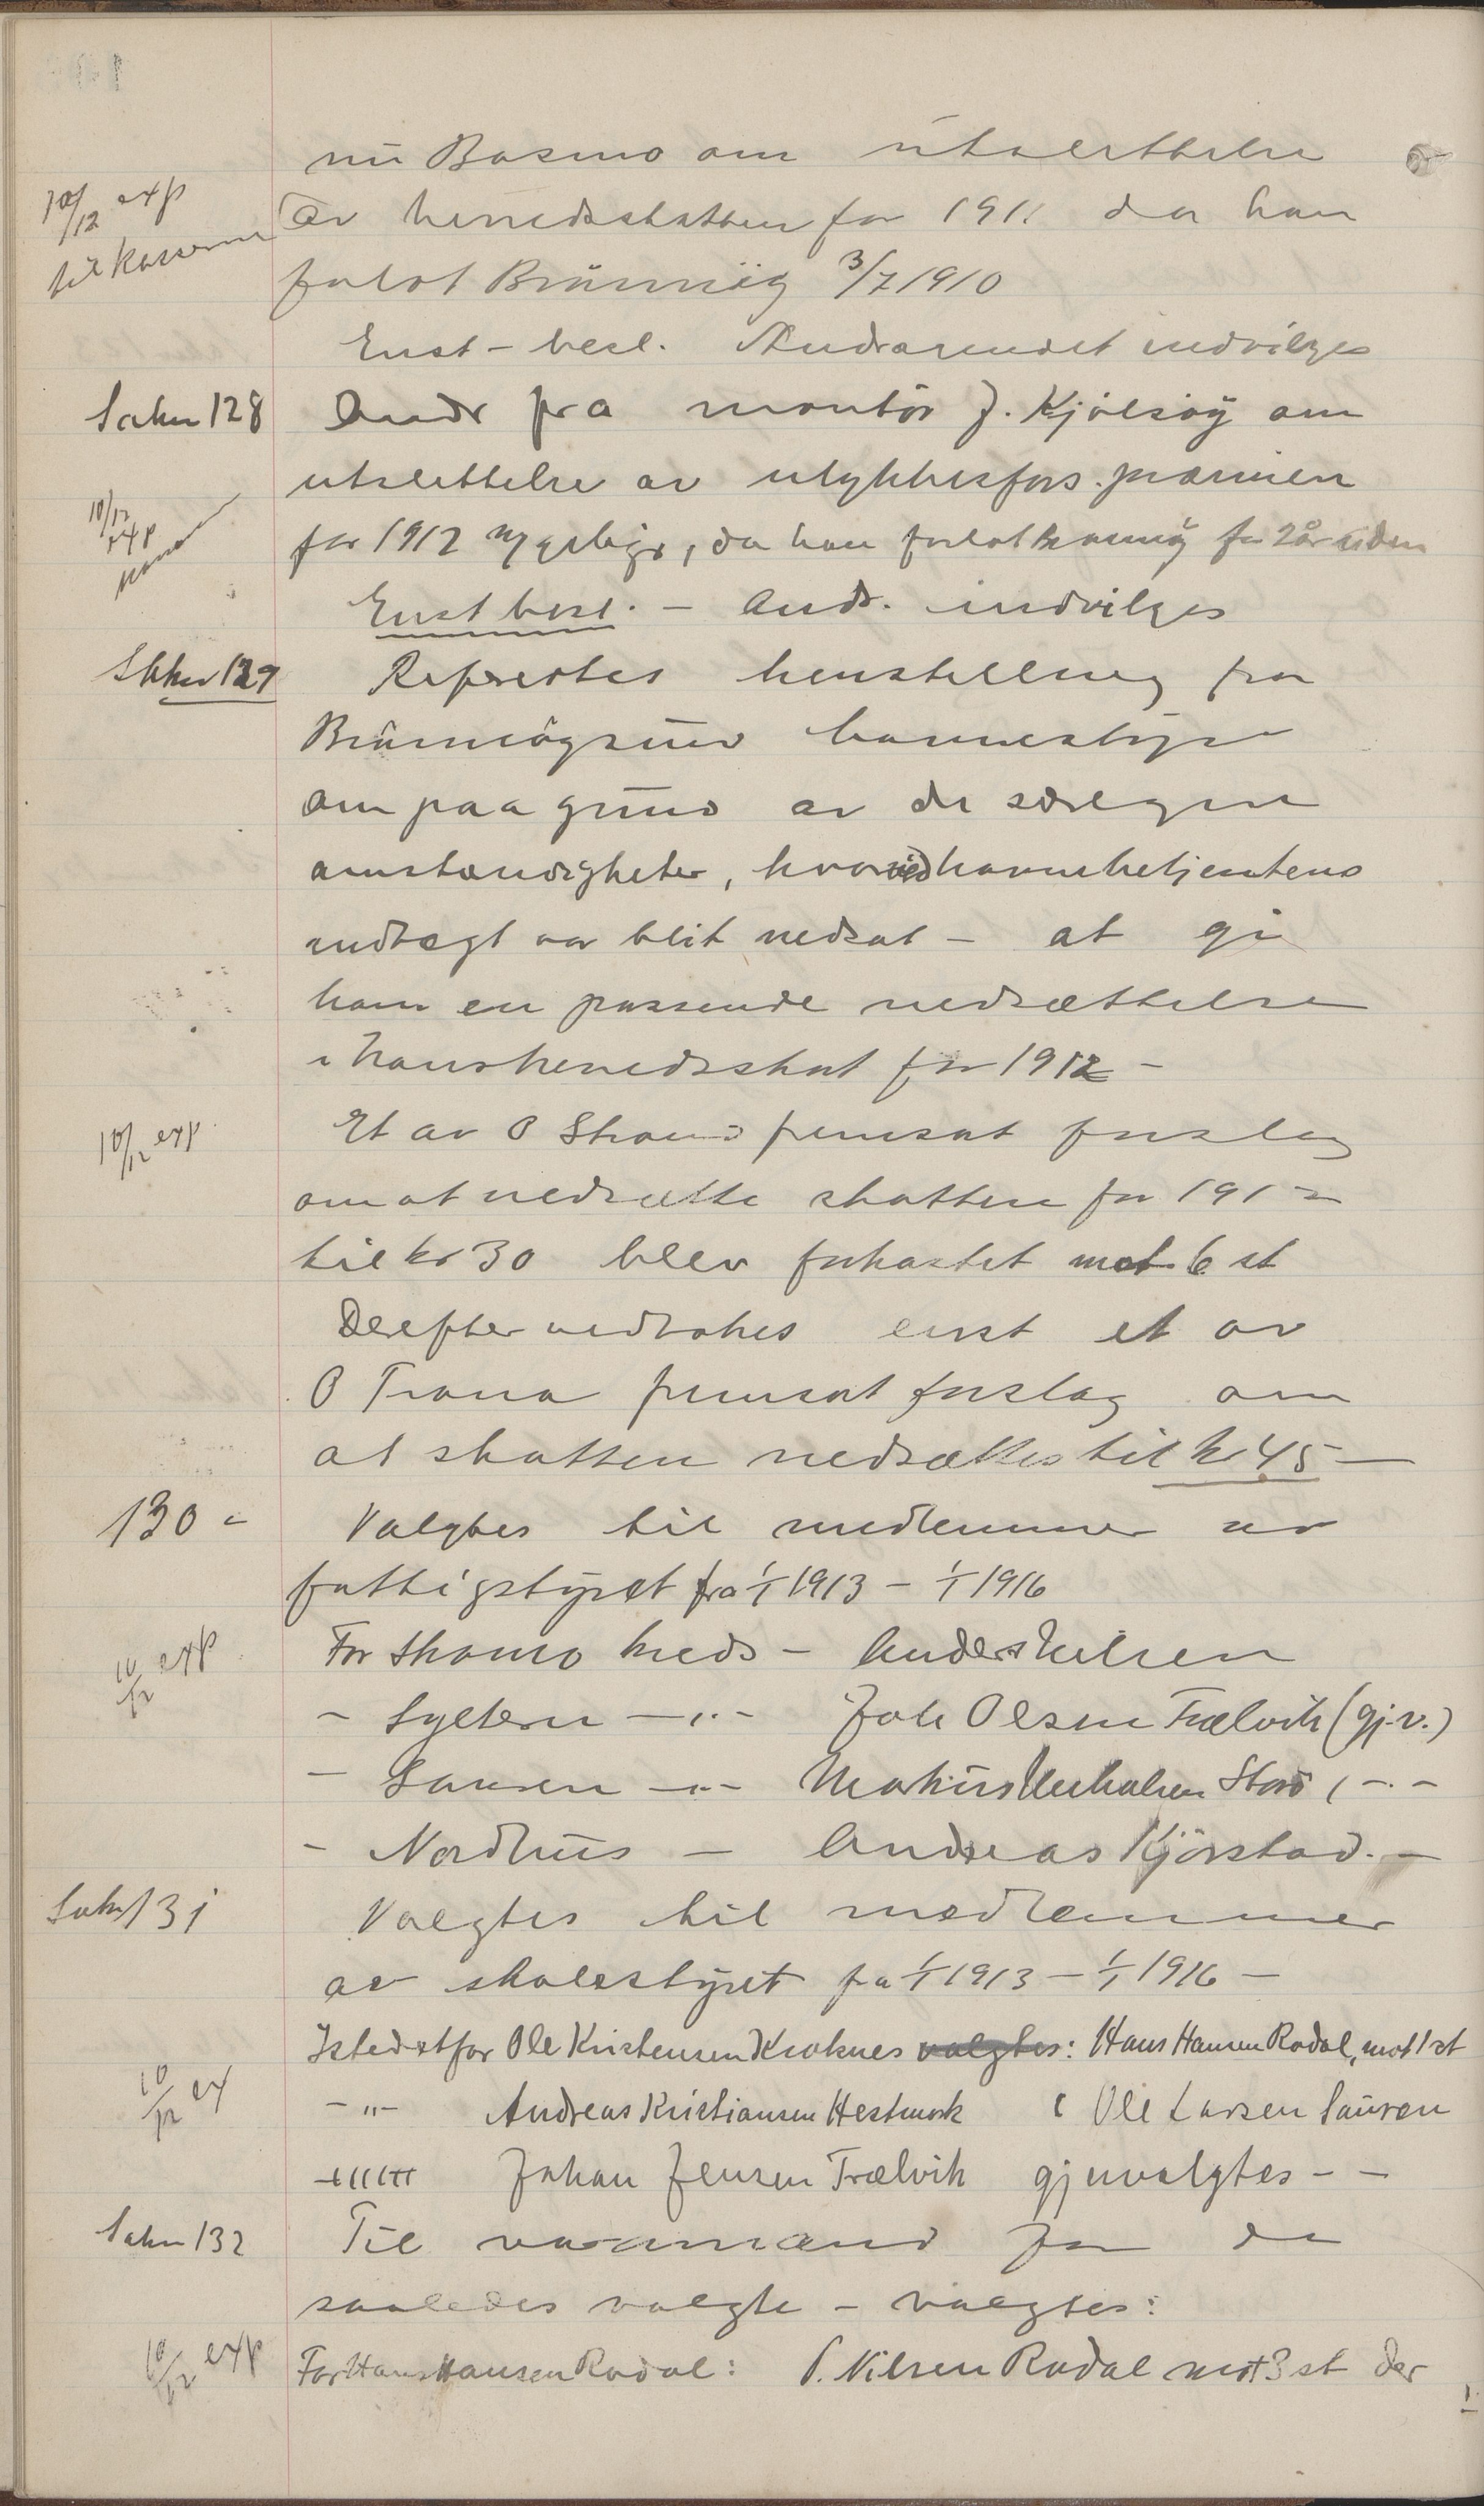 nu Basmo om utslettelse
10/12 exp av herredsskatten for 1911 da han
til kasserer
forlot Brønnøy 3/7 1910
Enst - besl. Andragendet indvilges
Sakn 128 Andr fra montør J. Kjølsøy om
utslettelse av ulykkesfors. præmien
10/12 exp
for 1912 da han forlot Brønnøy for 2 år siden
Enst besl. - Andr. indvilges
Sakn 129 Refereertes henstilling fra
Brønnøysund havnestyre
om paa grund av de særegne
omstændigheter, hvorved havnebetjentens
indtægt var blit nedsat - at gi
ham en passende nedsættelse
i hans herredsskat for 1912 -
10/12 exp. Et av O Strand fremsat forslag
om at nedsætte skatten for 1912
til kr 30 blev forkastet mot 6 st
Derefter vedtokes enst et av
O Trana fremsat forslag om
at skatten nedsættes til kr 45 -
130 - Valgtes til medlemmer av
fattigstyret fra 1/1 1913 - 1/1 1916
For Skomo kreds - Anders Nilsen
10/12 exp
- Sylteren -„- Joh Olsen Trælvik (gj.v.)
- Sausen -„- Markus Storø (-„-
- Nordhus - Andreas Kjørstad. -
Sakn 131 Valgtes til medlemmer
av skolestyret fra 1/1 1913 - 1/1 1916 -
Istedetfor Ole Kristensen Kroknes valgtes: Hans Hansen Rodal, mot 1 st
10/12 ex
-„- Andreas Kristiansen Hestmork ( Ole Larsen Sausen
-„- Johan Jensen Trælvik gjenvalgtes - -
Sakn 132 Til varamænd for de
saaledes valgte - valgtes:
10/12 exp For Hans Hansen Rodal: P. Nilsen Rodal mot 3 st der